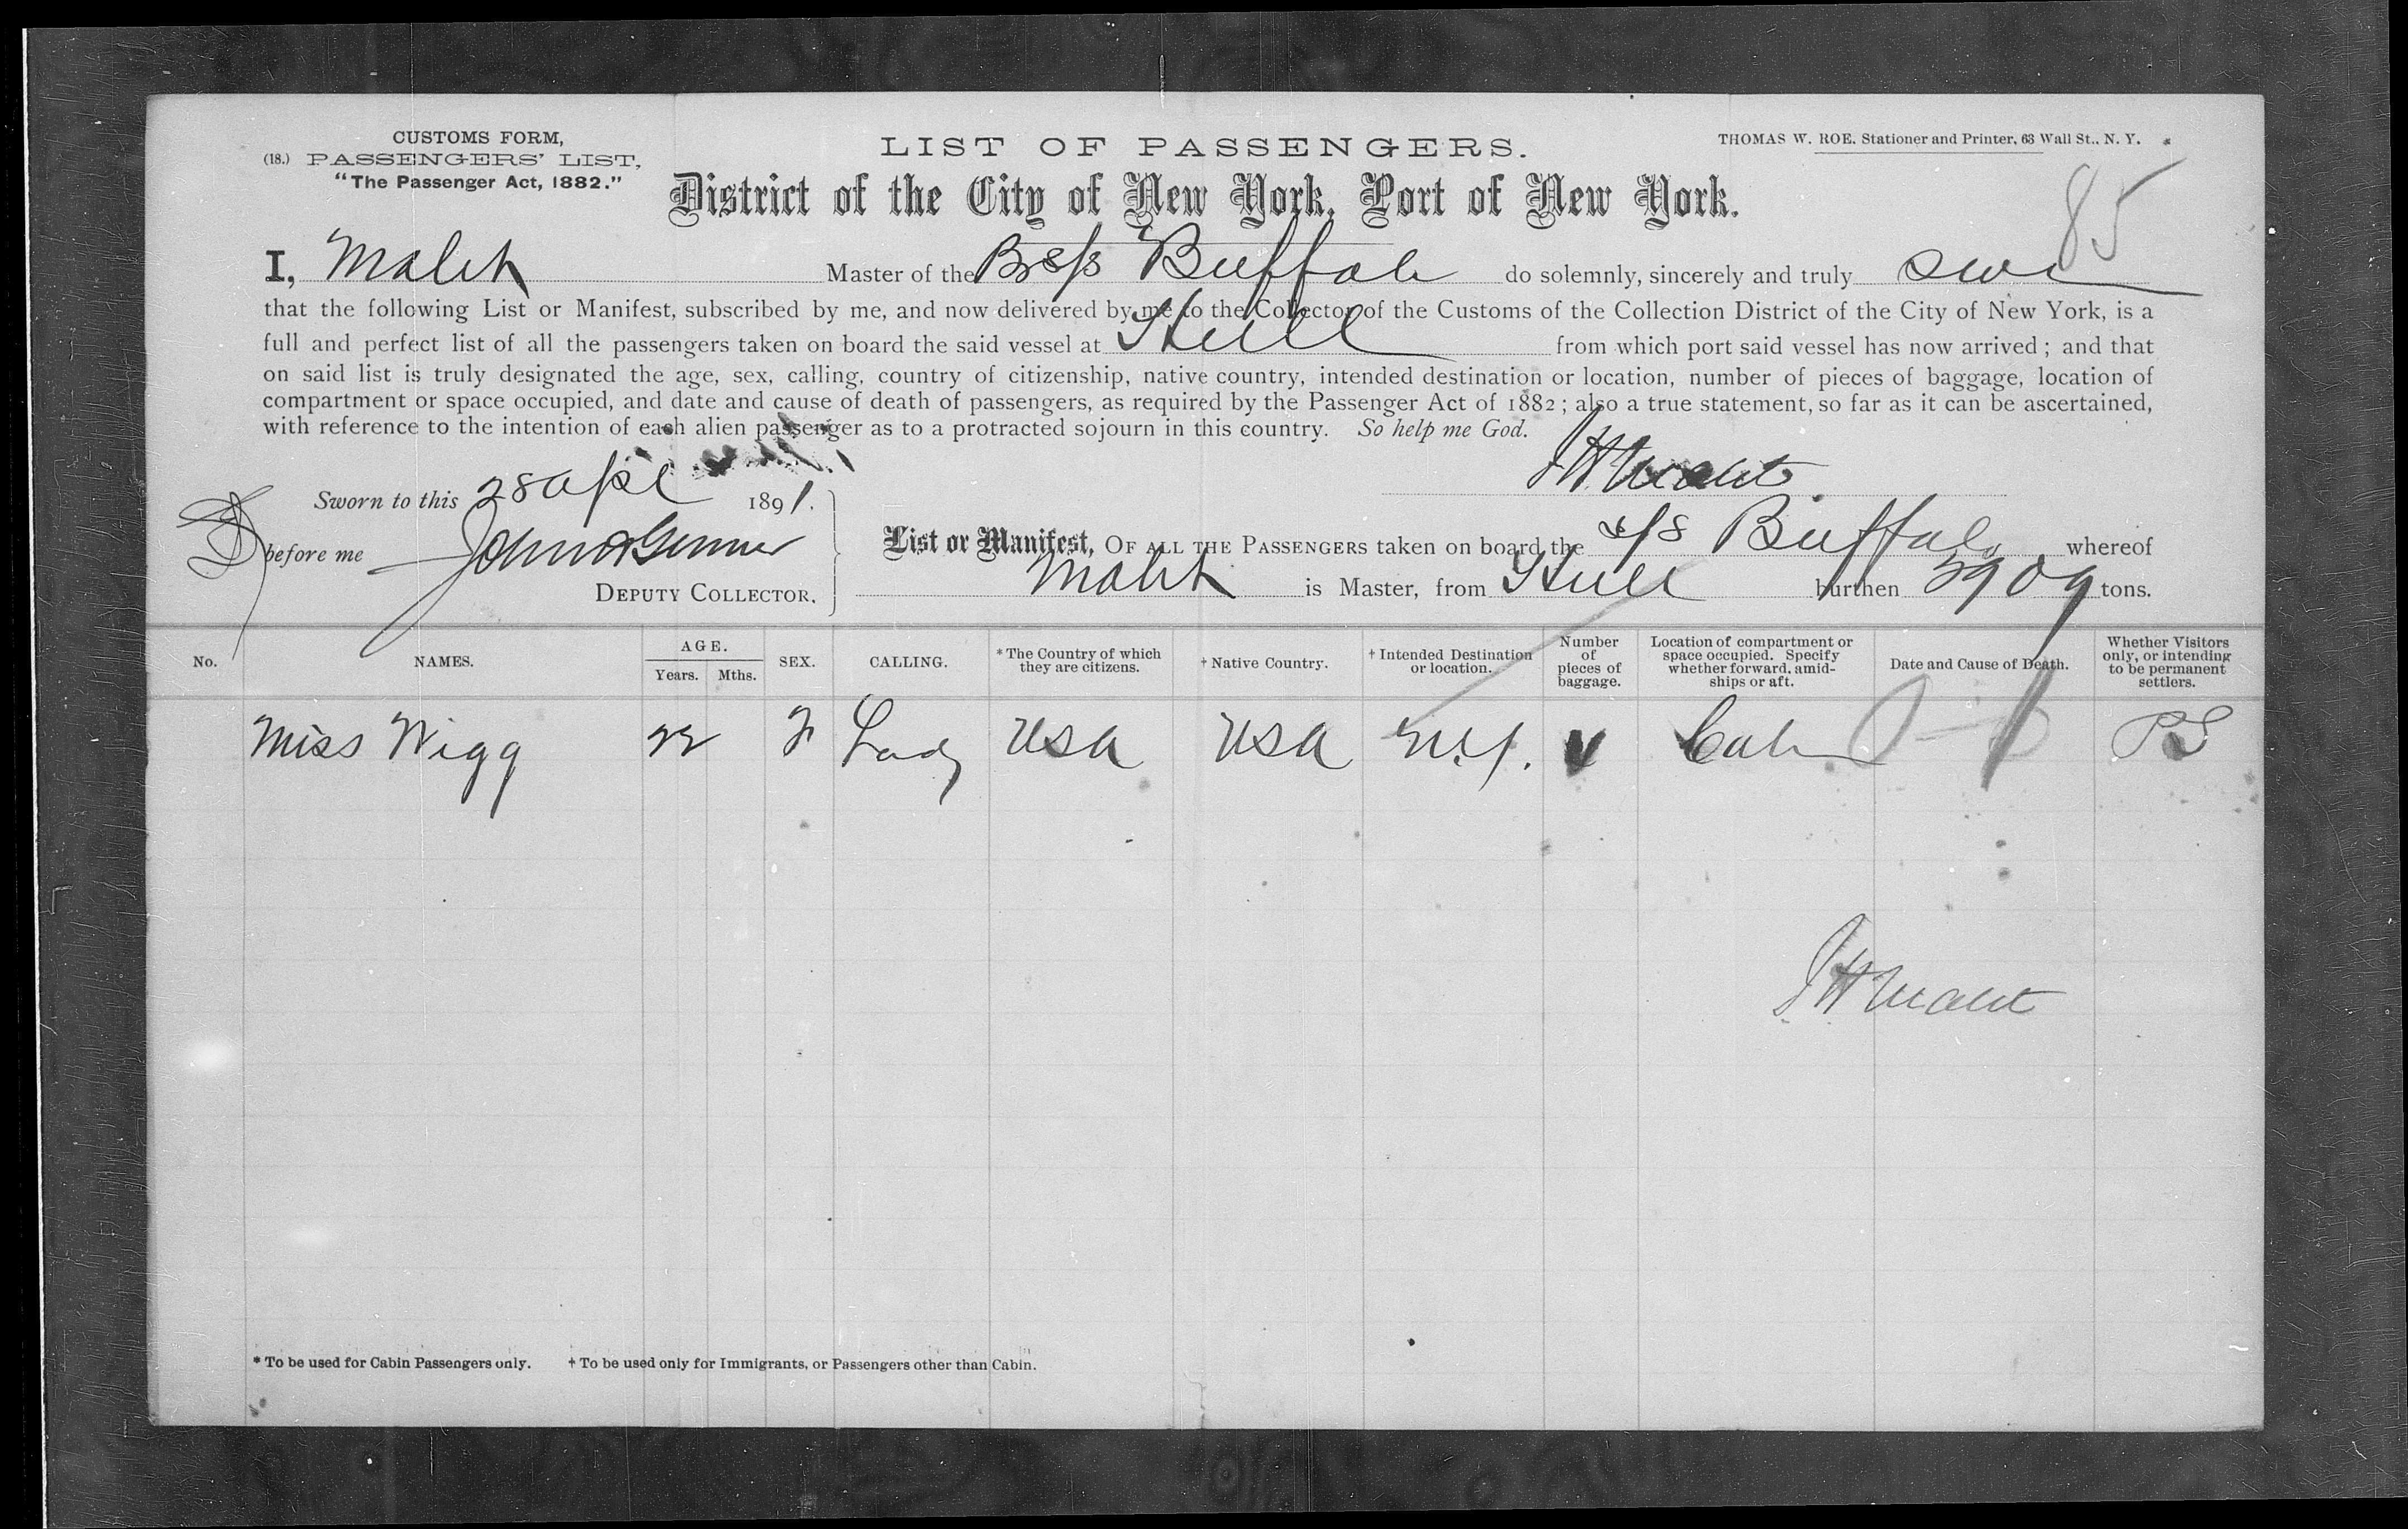 CUSTOMS FORM,
(18.) PASSENGERS' LIST,
"The Passenger Act, 1882."
LIST OF PASSENGERS.
THOMAS W. ROE, Stationer and Printer, 63 Wall St., N. Y.
85
District of the City of New York, Port of New York.
I, Master of the Br s/s Buffalo do solemnly, sincerely and truly
that the following List or Manifest, subscribed by me, and now delivered by me to the Collector of the Customs of the Collection District of the City of New York, is a
full and perfect list of all the passengers taken on board the said vessel at Hull from which port said vessel has now arrived; and that
on said list is truly designated the age, sex, calling, country of citizenship, native country, intended destination or location, number of pieces of baggage, location of
compartment or space occupied, and date and cause of death of passengers, as required by the Passenger Act of 1882; also a true statement, so far as it can be ascertained,
with reference to the intention of each alien passenger as to a protracted sojourn in this country. So help me God.
Sworn to this 28 apl 1891.
before me
DEPUTY COLLECTOR.
List or Manifest, OF ALL THE PASSENGERS taken on board the s/s Buffalo whereof
is Master, from Hull burthen tons.
No. NAMES. AGE. Years. Mths. SEX. CALLING. * The Country of which they are citizens. † Native Country. † Intended Destination or location. Number of pieces of baggage. Location of compartment or space occupied. Specify whether forward, amidships or aft. Date and Cause of Death. Whether Visitors only, or intending to be permanent settlers.
Miss Wigg 22 F Lady USA USA N.Y. Cabin PS
* To be used for Cabin Passengers only. † To be used only for Immigrants, or Passengers other than Cabin.